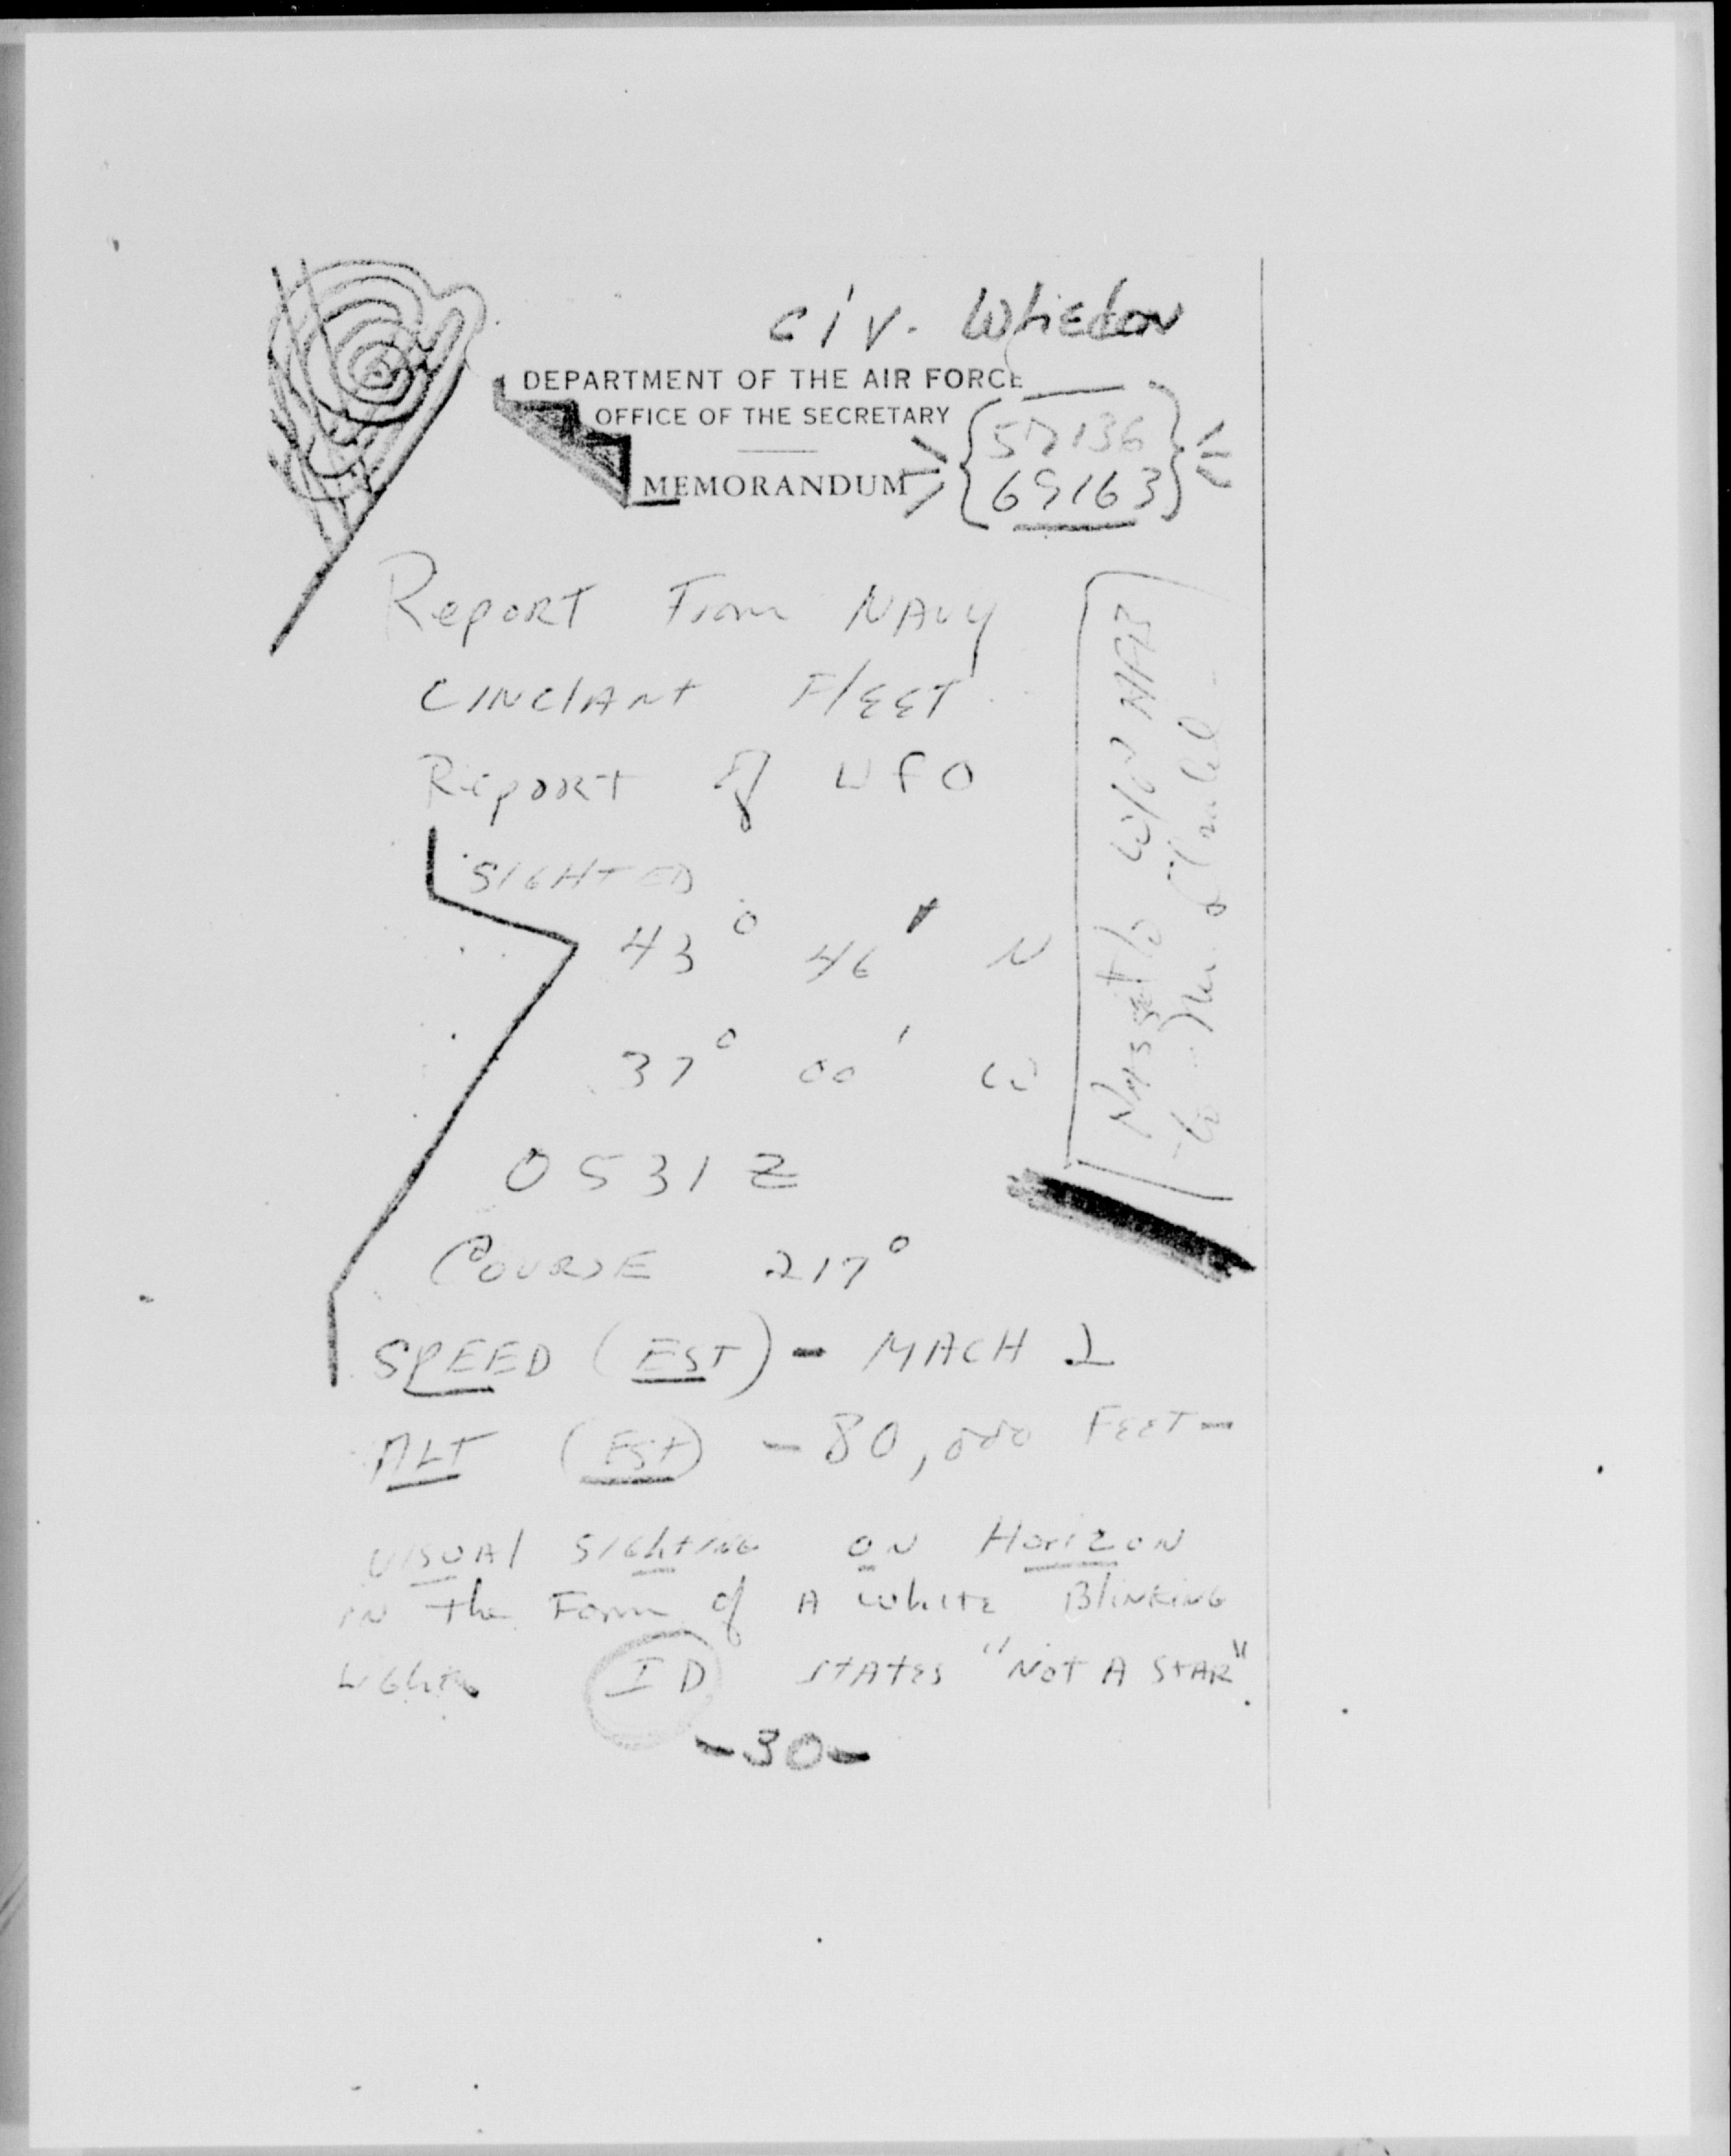 Civ. Whedon
DEPARTMENT OF THE AIR FORCE
OFFICE OF THE SECRETARY
MEMORANDUM
57136
69163
Report From NAVY
CINClANT FlEET
Report of UFO
SIGHTED
43° 46' N
37° 00' W
0531Z
COURSE 217°
SPEED (EST) - MACH 2
ALT (EST) - 80,000 FEET -
VISUAl SIGhtING ON HorIzoN
IN the Form of A white BlINKING
LIGht ID StAtES "NOT A STAR".
-30-